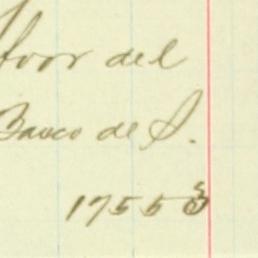 fvor del
Banco de S.
17553